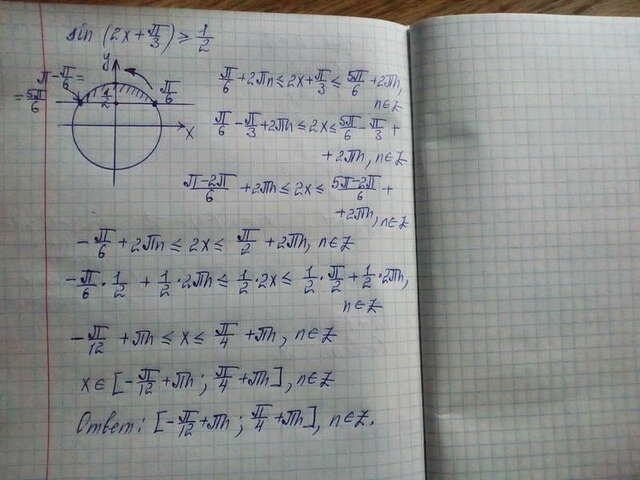 sin (2x + π/3) ≥ 1/2
y
π - π/6 =
= 5π/6
1/2
π/6
x
π/6 + 2πn ≤ 2x + π/3 ≤ 5π/6 + 2πn,
n ∈ Z
π/6 - π/3 + 2πn ≤ 2x ≤ 5π/6 - π/3 +
+ 2πn, n ∈ Z
π-2π/6 + 2πn ≤ 2x ≤ 5π-2π/6 +
+ 2πn, n ∈ Z
- π/6 + 2πn ≤ 2x ≤ π/2 + 2πn, n ∈ Z
- π/6 · 1/2 + 1/2 · 2πn ≤ 1/2 · 2x ≤ 1/2 · π/2 + 1/2 · 2πn,
n ∈ Z
- π/12 + πn ≤ x ≤ π/4 + πn, n ∈ Z
x ∈ [- π/12 + πn ; π/4 + πn], n ∈ Z
Ответ: [- π/12 + πn ; π/4 + πn], n ∈ Z.